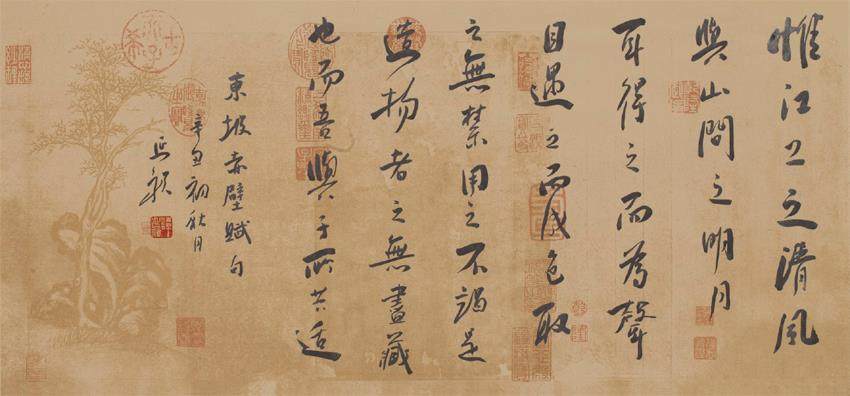 惟江上之清風
與山間之明月
耳得之而為聲
目遇之而成色取
之無禁用之不竭是
造物者之無盡藏
也而吾與子所共適
東坡赤壁賦句
辛丑初秋月